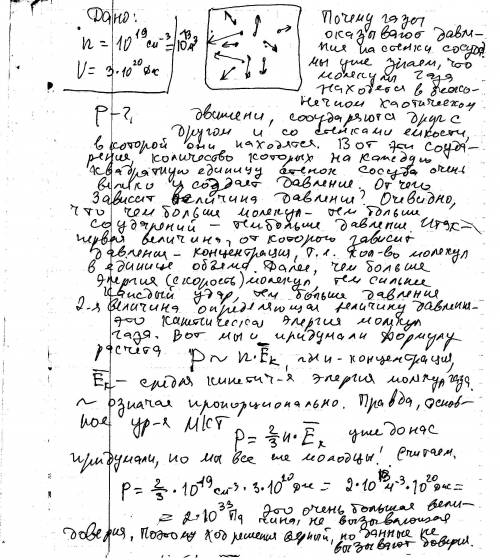 Дано:
n = 10¹⁹ см⁻³ = 10 м³
V = 3·10²⁰ Дж
P - ?
Почему газы
оказывают давле-
ние на стенки сосуда
мы уже знаем, что
молекулы газа
находятся в беско-
нечном хаотическом
движени, соударяются друг с
другом и со стенками емкости,
в которой они находятся. Вот эти соуда-
рения, количество которых на каждую
квадратную единицу стенок сосуда очень
велико и создает давление. От чего
зависит величина давления? Очевидно,
что чем больше молекул - тем больше
соударений - тем больше давление. Итак -
первая величина, от которого зависит
давления - концентрация, т.е. кол-во молекул
в единице объема. Далее, чем больше
энергия (скорость) молекул, тем сильнее
каждый удар, тем больше давления
2-я величина определяющая величину давления -
это кинтическа энергия молкул
газа. Вот мы и придумали формулу
расчета P ~ n·Eк, где n - концентрация,
Eк - средня кинетич-я энергия молкул газа.
~ означая пропорционально. Правда, основ-
ное ур-я МКТ
P = 2/3 n·Eк уже до нас
придумали, но мы все же молодцы! Считаем.
P = 2/3 · 10¹⁹ см⁻³ · 3·10²⁰ Дж = 2·10¹³ м⁻³·10²⁰ Дж =
= 2·10³³ Па Это очень большая вели-
чина, не вызывающая
доверия, поэтому ход решения верный, но данные не
вызывают доверия.